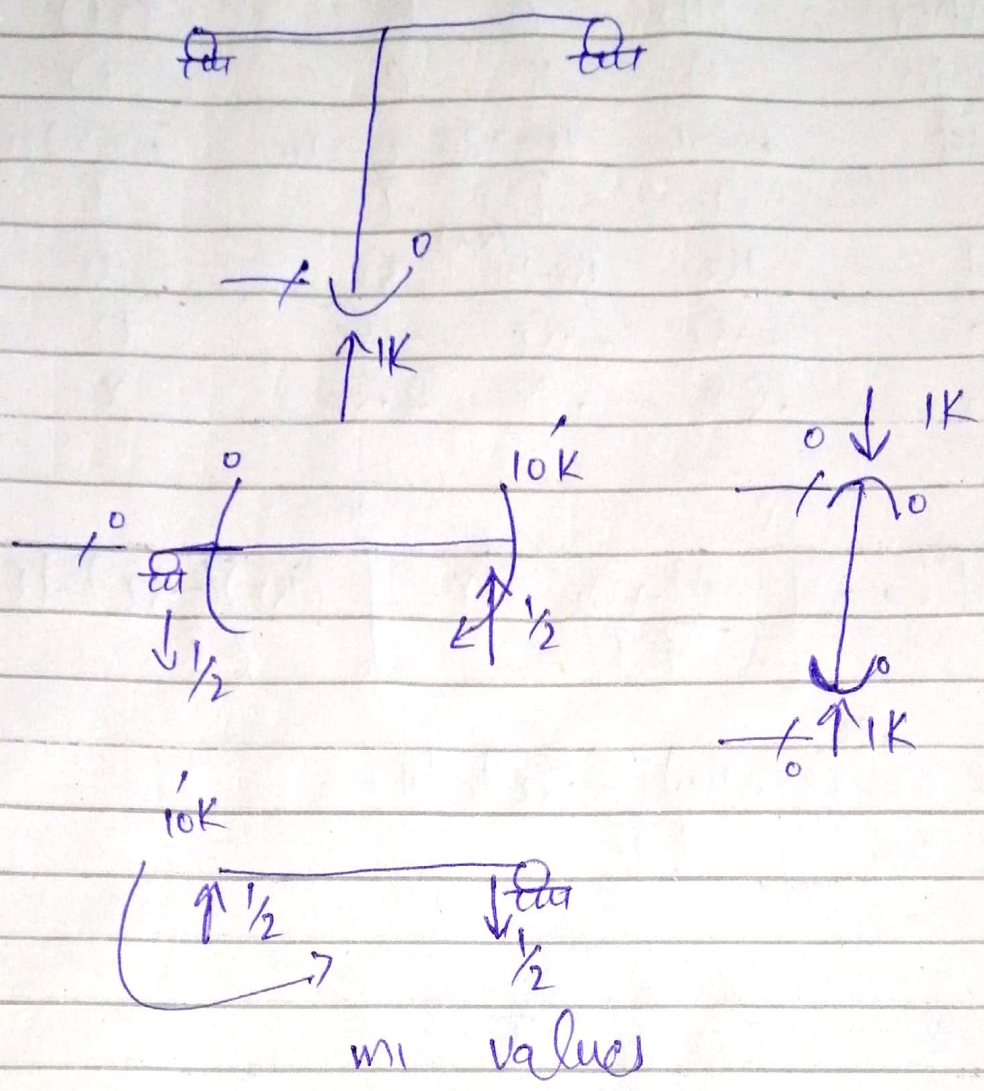 0
1K
0
10'K
0
1/2
1/2
0
1K
0
0
1K
0
10'K
1/2
1/2
m1 values